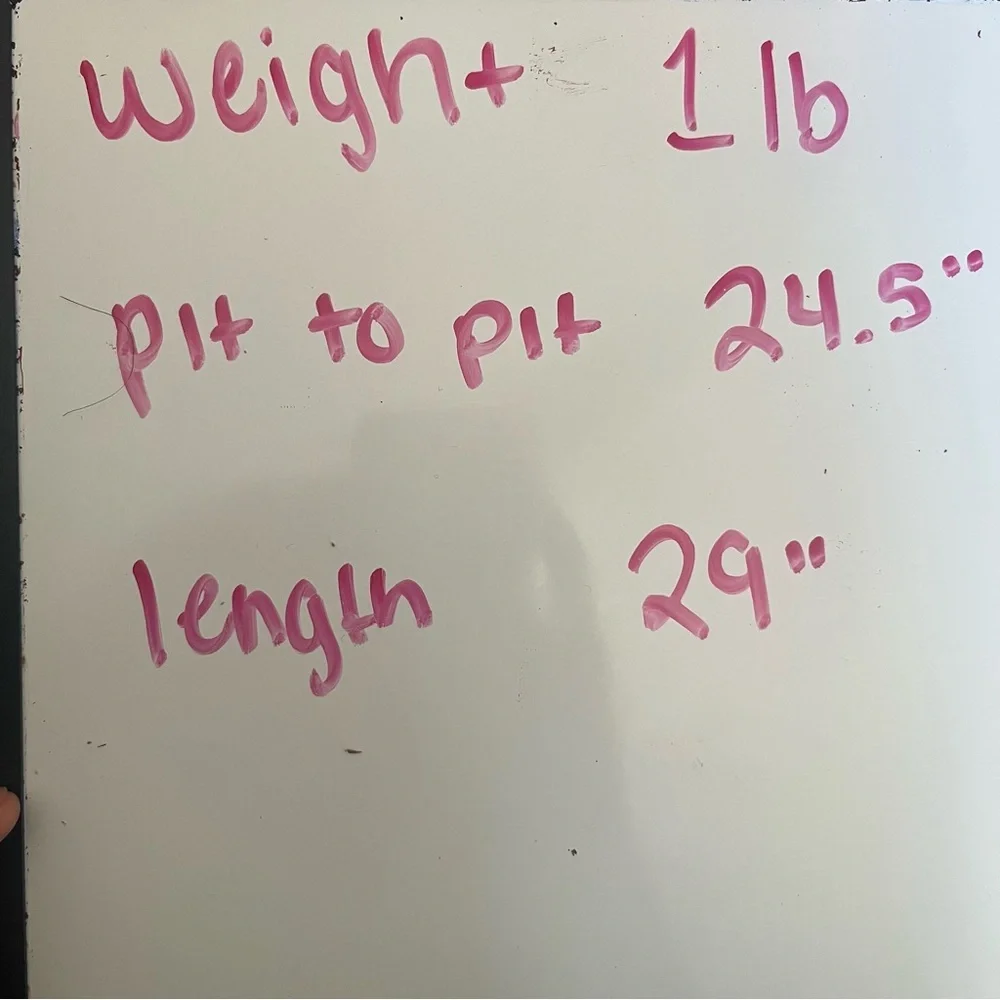 weight 1 lb
pit to pit 24.5"
length 29"